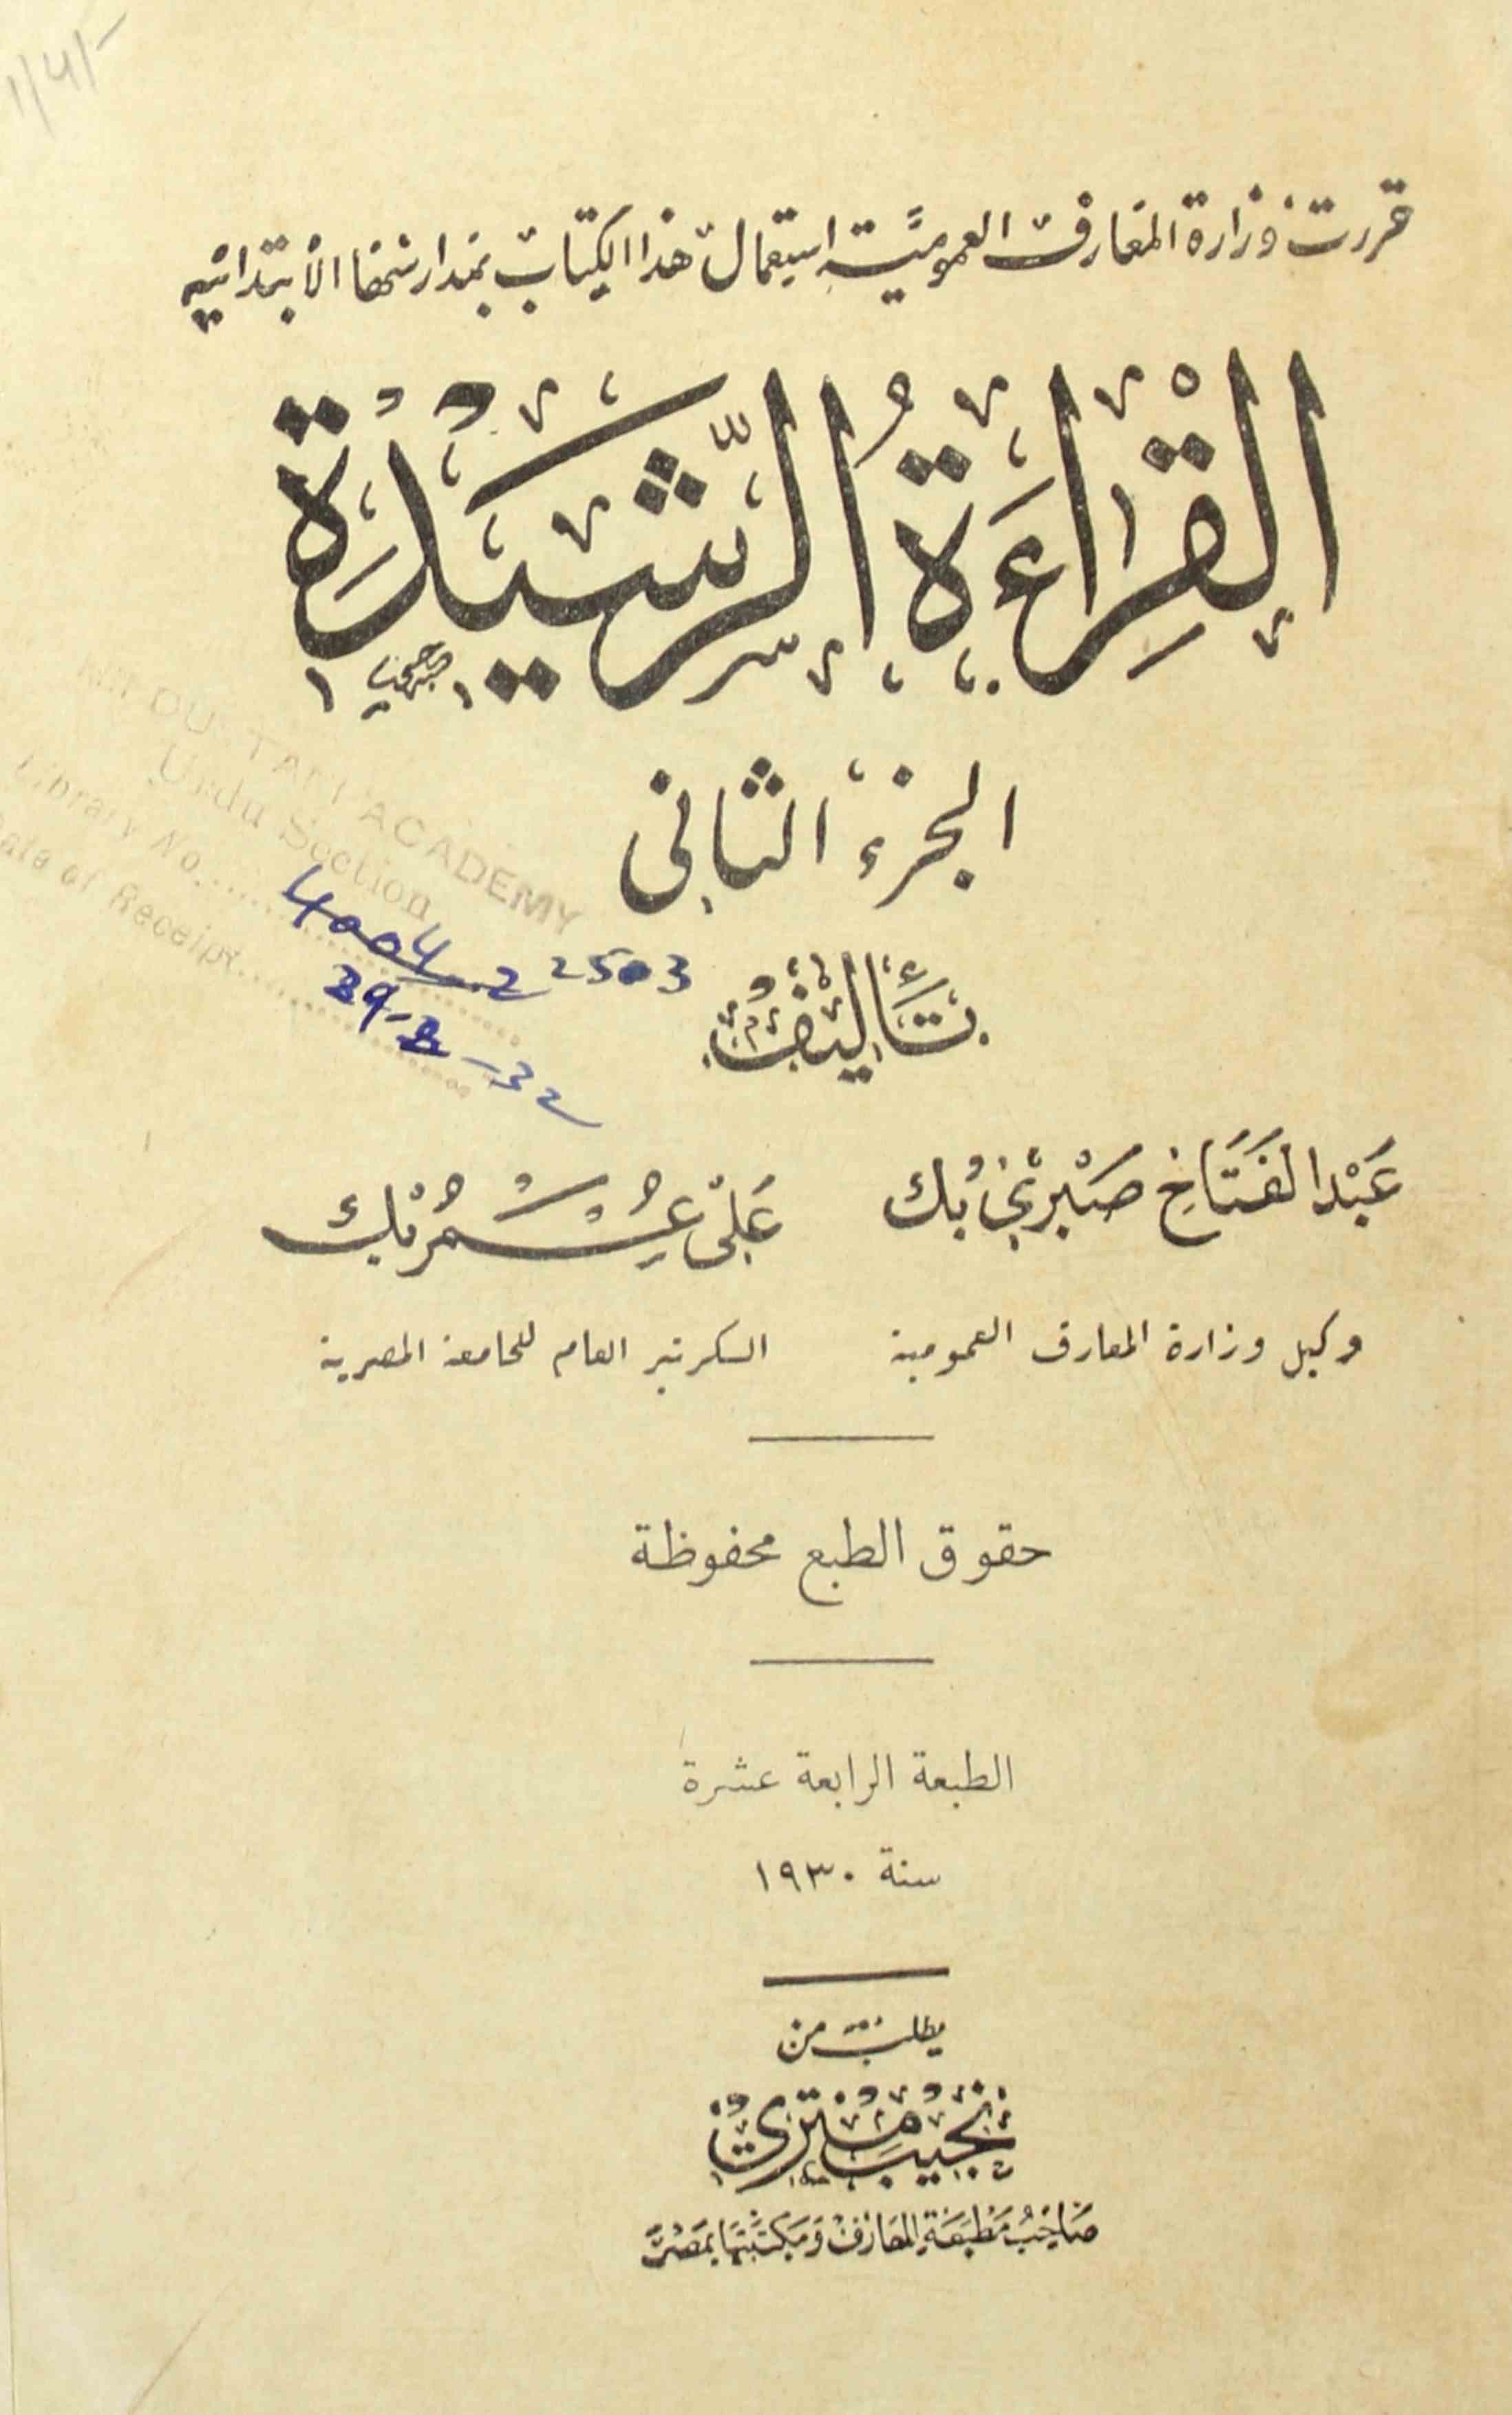 1/4/-
قررت وزارة المعارف العمومية استعمال هذا الكتاب بمدارسها الابتدائية
القِرَاءَةُ الرَّشِيدَةُ
الجزء الثانى
تَأليفُ
عَبْد الفَتَّاح صَبْرِي بُك
عَلِى عُمَر بُك
وكيل وزارة المعارف العمومية
السكرتير العام للجامعة المصرية
حقوق الطبع محفوظة
الطبعة الرابعة عشرة
سنة ١٩٣٠
يطلب من
نجيب متري
صَاحِبُ مَطْبَعَةِ المَعَارِف وَمَكتَبَتِهَا بِمَصْر
ACADEMY
Urdu Section
Library No.
Date of Receipt
4004
22503
29-8-32